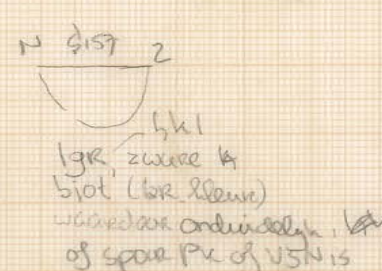 N S157 Z
hkl
lgr, zware
biot (br kleur)
waardoor onduidelyk,
of spoor Pk of VSN is